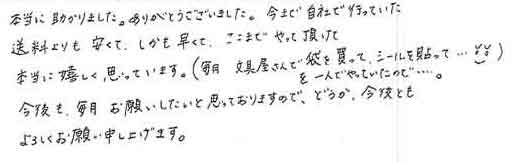 本当に助かりました。ありがとうございました。今まで自社で行っていた
送料よりも安くて、しかも早くて、ここまでやって頂けて
本当に嬉しく思っています。(毎月 文具屋さんで袋を買って、シールを貼って…
を一人でやっていたので…。
今後も、毎月お願いしたいと思っておりますので、どうか、今後とも
よろしくお願い申し上げます。